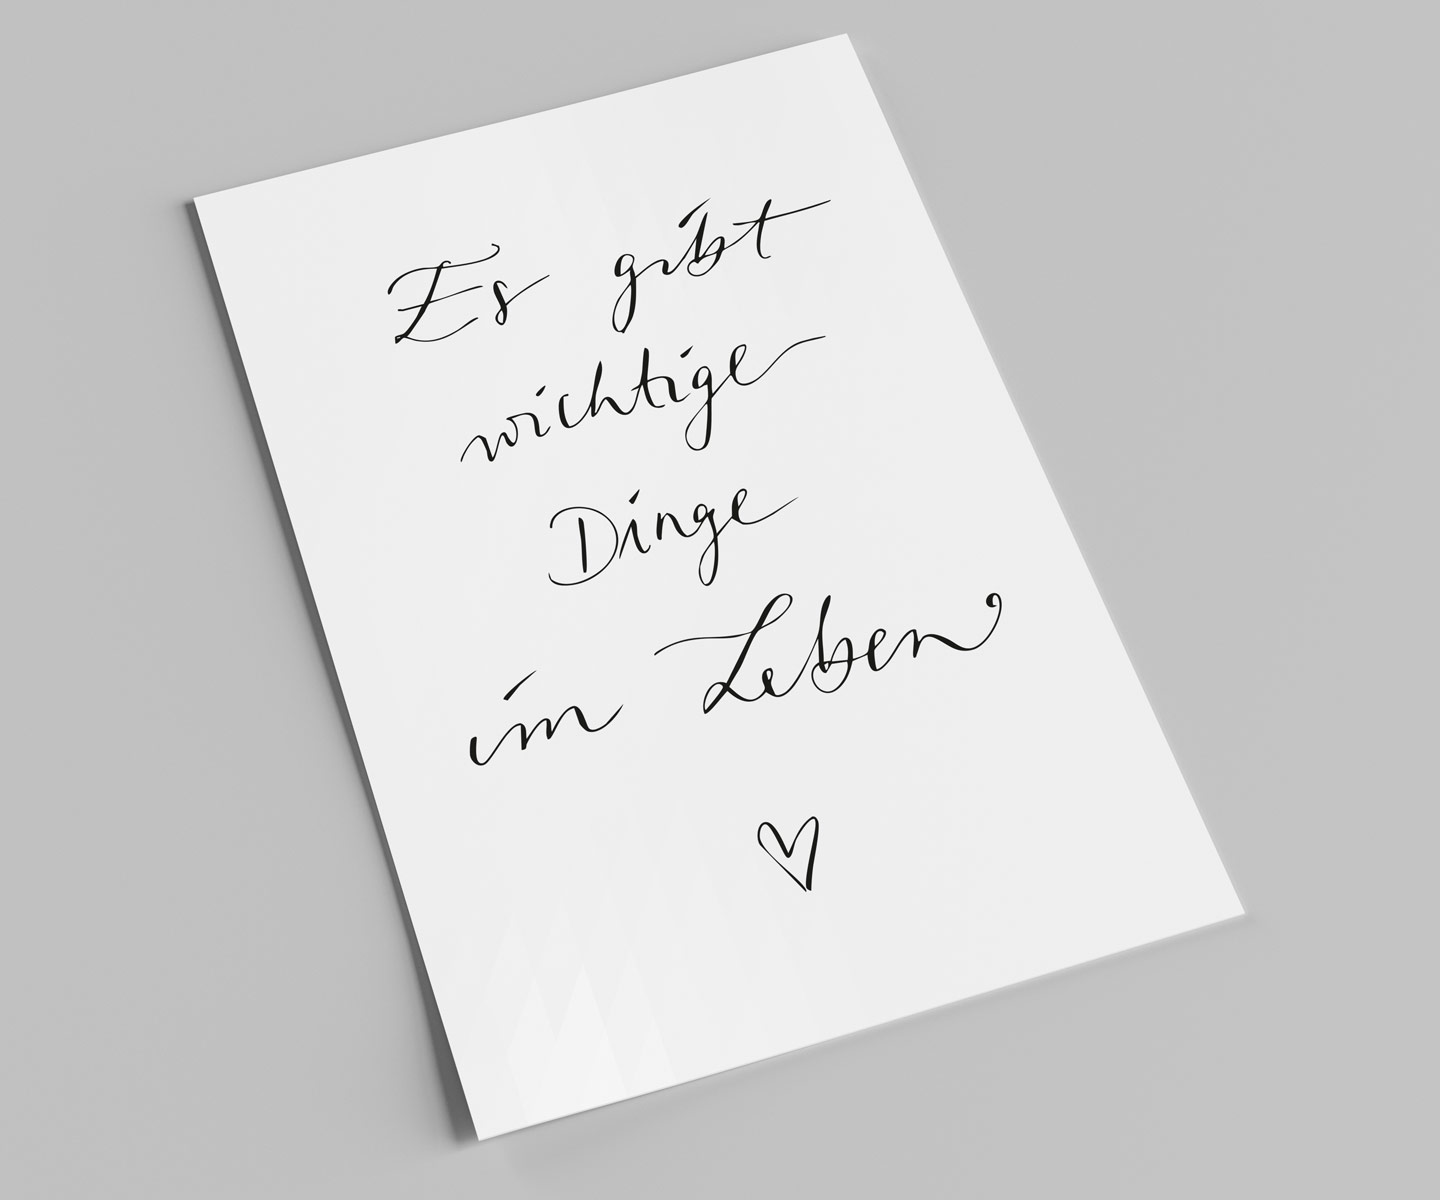 Es gibt
wichtige
Dinge
im Leben